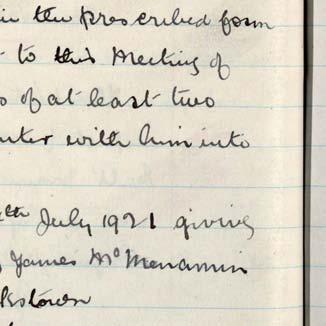 in the prescribed form
to this Meeting of
of at least two
enter with him into
th July 1921 giving
James McMenamin
kstown